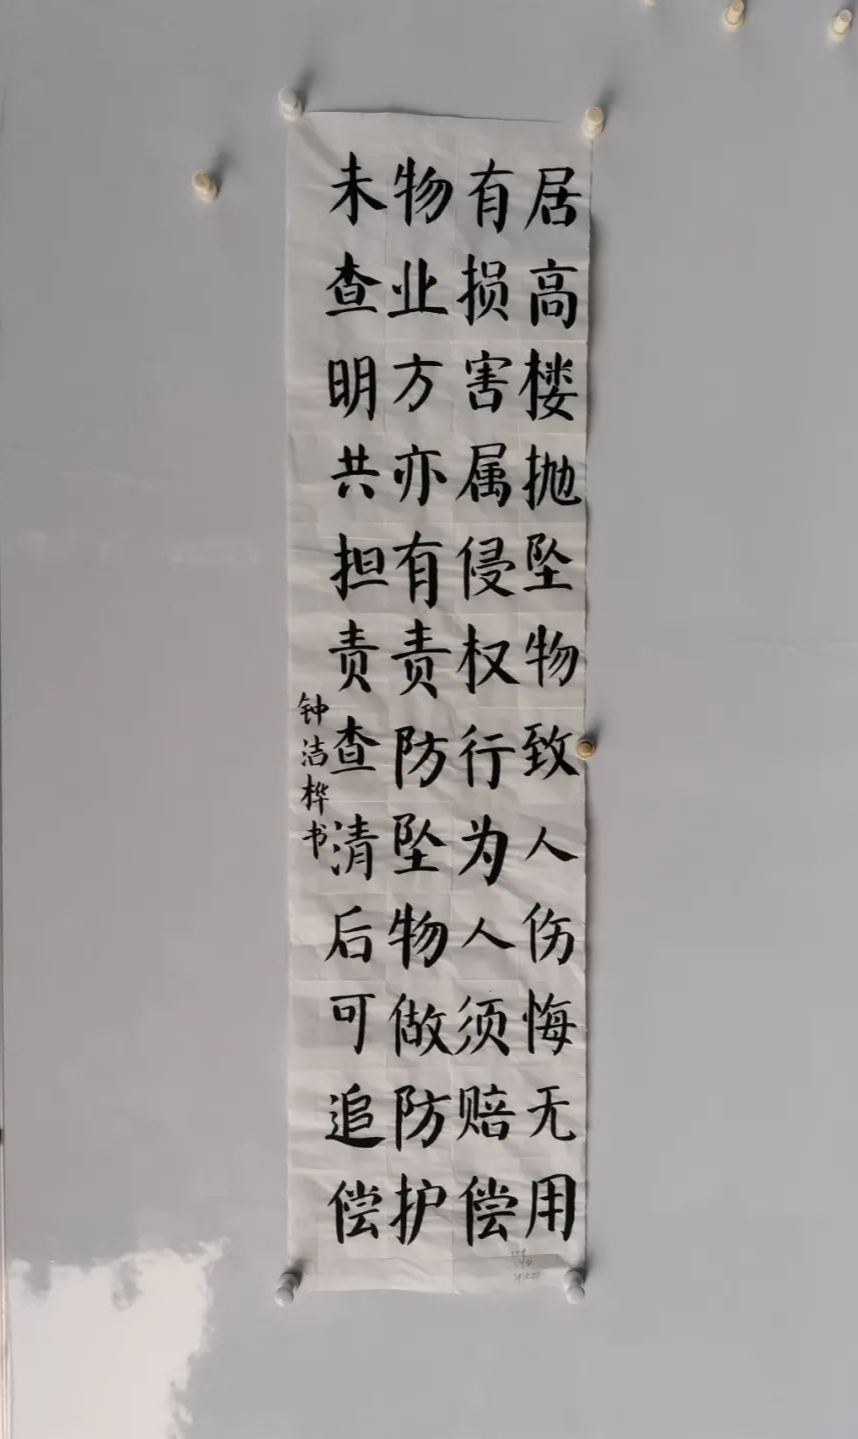 居高楼抛坠物致人伤悔无用
有损害属侵权行为人须赔偿
物业方亦有责防坠物做防护
未查明共担责查清后可追偿
钟洁桦书